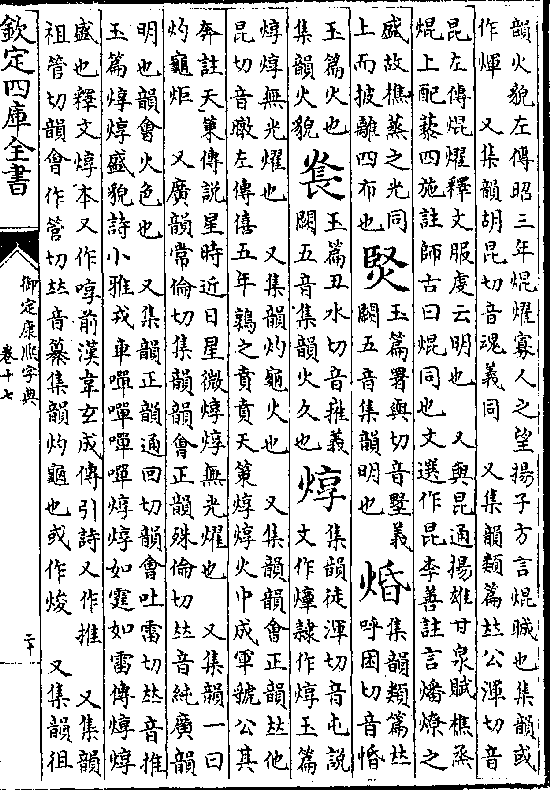 韻火貌左傳昭三年焜燿寡人之望揚子方言焜晠也集韻或
作煇 又集韻胡昆切音魂義同 又集韻類篇𠀤公渾切音
昆左傳焜燿釋文服虔云明也 又與昆通揚雄甘泉賦樵蒸
焜上配藜四施註師古曰焜同也文選作昆李善註言燔燎之
盛故樵蒸之光同
上而披離四布也
㷂
玉篇署與切音墅義
闕五音集韻明也
焝
集韻類篇𠀤
呼困切音惛
玉篇火也
集韻火貌
玉篇丑水切音推義
闕五音集韻火久也
焞
集韻徒渾切音屯說
文作𤏙隸作焞玉篇
焞焞無光燿也 又集韻灼龜火也 又集韻韻會正韻𠀤他
昆切音暾左傳僖五年鶉之賁賁天策焞焞火中成軍虢公其
奔註天策傅說星時近日星微焞焞無光燿也 又集韻一曰
灼龜炬 又廣韻常倫切集韻韻會正韻殊倫切𠀤音純廣韻
明也韻會火色也 又集韻正韻通回切韻會吐雷切𠀤音推
玉篇焞焞盛貌詩小雅戎車嘽嘽嘽嘽焞焞如霆如雷傳焞焞
盛也釋文焞本又作啍前漢韋玄成傳引詩又作推 又集韻
祖管切韻會作管切𠀤音纂集韻灼龜也或作焌 又集韻徂
欽定四庫全書
御定康熙字典
卷十七
二十